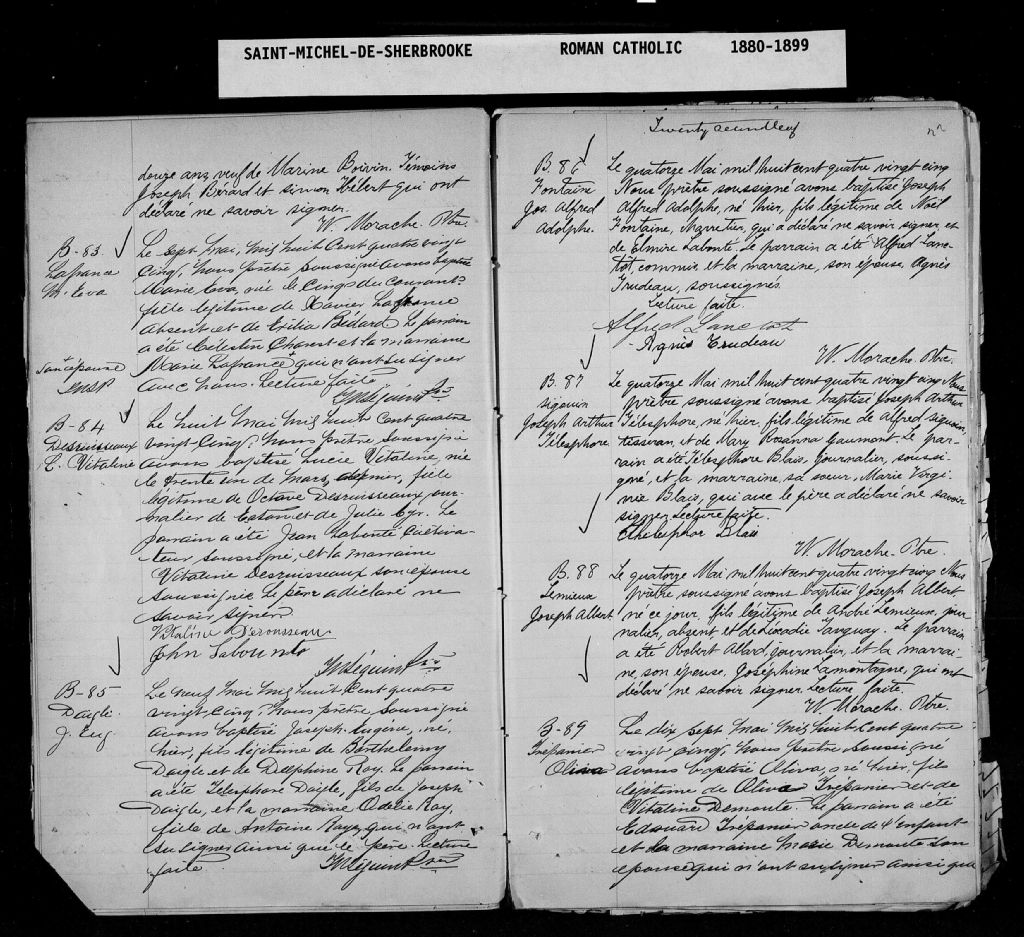 SAINT-MICHEL-DE-SHERBROOKE ROMAN CATHOLIC 1880-1899
douze ans, veuf de Marine Boivin. Témoins
Joseph Bérard et simon Hébert qui ont
déclaré ne savoir signer.
W. Morache. Ptre.
B-83.
Lafrance
M. Eva
Le Sept Mai, Mil huit Cent quatre vingt
Cinq, nous prêtre soussigné avons baptisé
Marie Eva, née le Cinq du courant
fille légitime de Xavier Lafrance
absent et de Exilia Bédard. Le parrain
a été Célestin Charest et la marraine
Marie Lafrance + qui n'ont su signer
avec nous. Lecture faite
+ Son épouse
B-84
Desruisseaux
L. Vitaline
Le huit Mai Mil huit Cent quatre
vingt Cinq, nous prêtre soussigné
avons baptisé Lucie Vitaline, née
le trente un de Mars dernier, fille
légitime de Octave Desruisseaux jour-
nalier de Eaton et de Julie Cyr. Le
parrain a été Jean Labonté Cultiva-
teur soussigné, et la marraine
Vitaline Desruisseaux son épouse
soussignée le père a déclaré ne
savoir signer
Vitaline
John
B-85
Daigle.
J. Eug
Le neuf Mai Mil huit Cent quatre
vingt Cinq, nous prêtre soussigné
avons baptisé Joseph Eugène, né,
hier, fils légitime de Barthelemy
Daigle et de Delphine Roy. Le parrain
a été Télesphore Daigle, fils de Joseph
Daigle, et la marraine Odélie Roy,
fille de Antoine Roy, qui n'ont
su signer ainsi que le père. Lecture
faite
Twenty second leaf
22
B. 86
Fontaine
Jos. Alfred
Adolphe.
Le quatorze Mai mil huit cent quatre vingt cinq
Nous prêtre soussigné avons baptisé Joseph
Alfred Adolphe, né hier, fils légitime de Noël
Fontaine, Charretier, qui a déclaré ne savoir signer et
de Elmire Labonté. Le parrain a été Alfred Lanc-
tôt, commis, et la marraine, son épouse, Agnès
Trudeau, soussignés
Lecture faite.
Alfred Lanctot
Agnès Trudeau
W. Morache. Ptre.
B. 87
siguoin
Joseph Arthur
Télesphore
Le quatorze Mai mil huit cent quatre vingt cinq Nous
prêtre soussigné avons baptisé Joseph Arthur
Télesphore, né hier, fils légitime de Alfred siguoin
tisseran, et de Mary Rosanna Gaumont. Le par-
rain a été Télesphore Blais, journalier, soussi-
gné, et la marraine, sa sœur, Marie Virgi
nie Blais, qui avec le père a déclaré ne savoir
signer. Lecture faite.
Blais
W. Morache. Ptre.
B. 88
Lemieux
Joseph Albert
Le quatorze Mai mil huit cent quatre vingt cinq Nous
prêtre, soussigné avons baptisé Joseph Albert
né ce jour, fils légitime de André Lemieux, jour
nalier, absent et de Léocadie Tanguay. Le parrain
a été Robert Allard, journalier, et la marrai
ne, son épouse, Joséphine Lamontagne, qui ont
déclaré ne savoir signer. Lecture faite.
W. Morache. Ptre.
B-89
Trépanier
Oliva
Le dix sept Mai Mil huit Cent quatre
vingt Cinq, nous prêtre soussigné
avons baptisé Oliva, né hier, fils
légitime de Oliva Trépanier et de
Vitaline Demoute. le parrain a été
Edouard Trépanier oncle de l'enfant
et la marraine Marie Demoute son
épouse qui n'ont su signer ainsi que